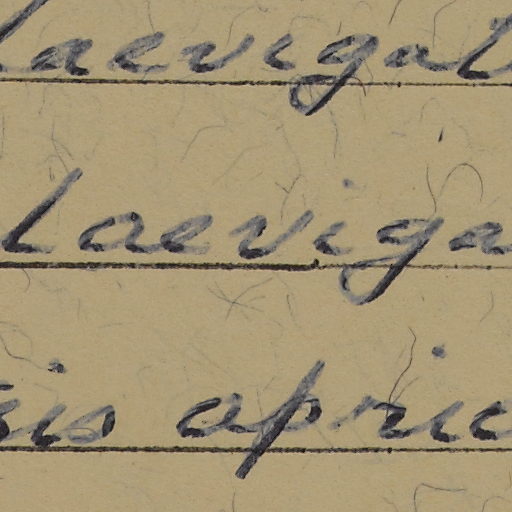 laevigat
laeviga
is apric